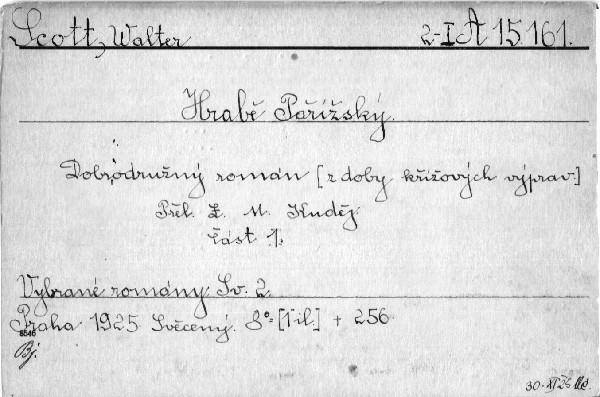 Scott, Walter 2-I Å 15.161.
Hrabě Pařížský.
Dobrodružný román [z doby křížových výprav.]
Přel. Z. M. Kuděj
Část 1.
Vybrané romány. Sv. 2.
Praha 1925 Svěcený. 8° [1 il.] + 256
8546
Bj.
30-XI-26